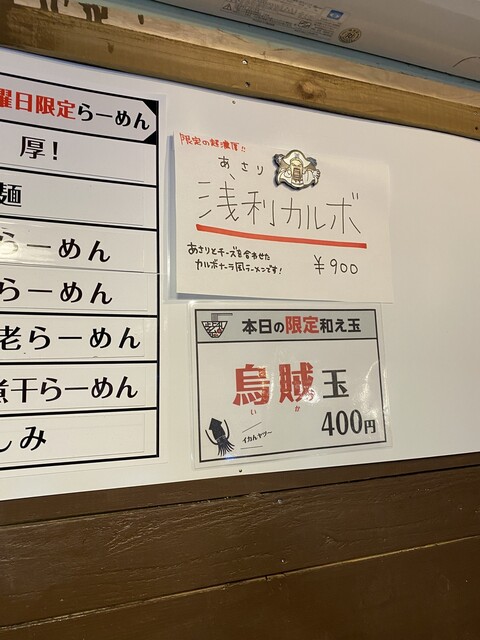 曜日限定らーめん
厚！
麺
らーめん
らーめん
老らーめん
煮干らーめん
しみ
限定の超濃厚!!
あさり
浅利カルボ
あさりとチーズを合わせた
カルボナーラ風ラーメンです！
¥900
本日の限定和え玉
烏賊玉
いか
イカんヤツー
400円